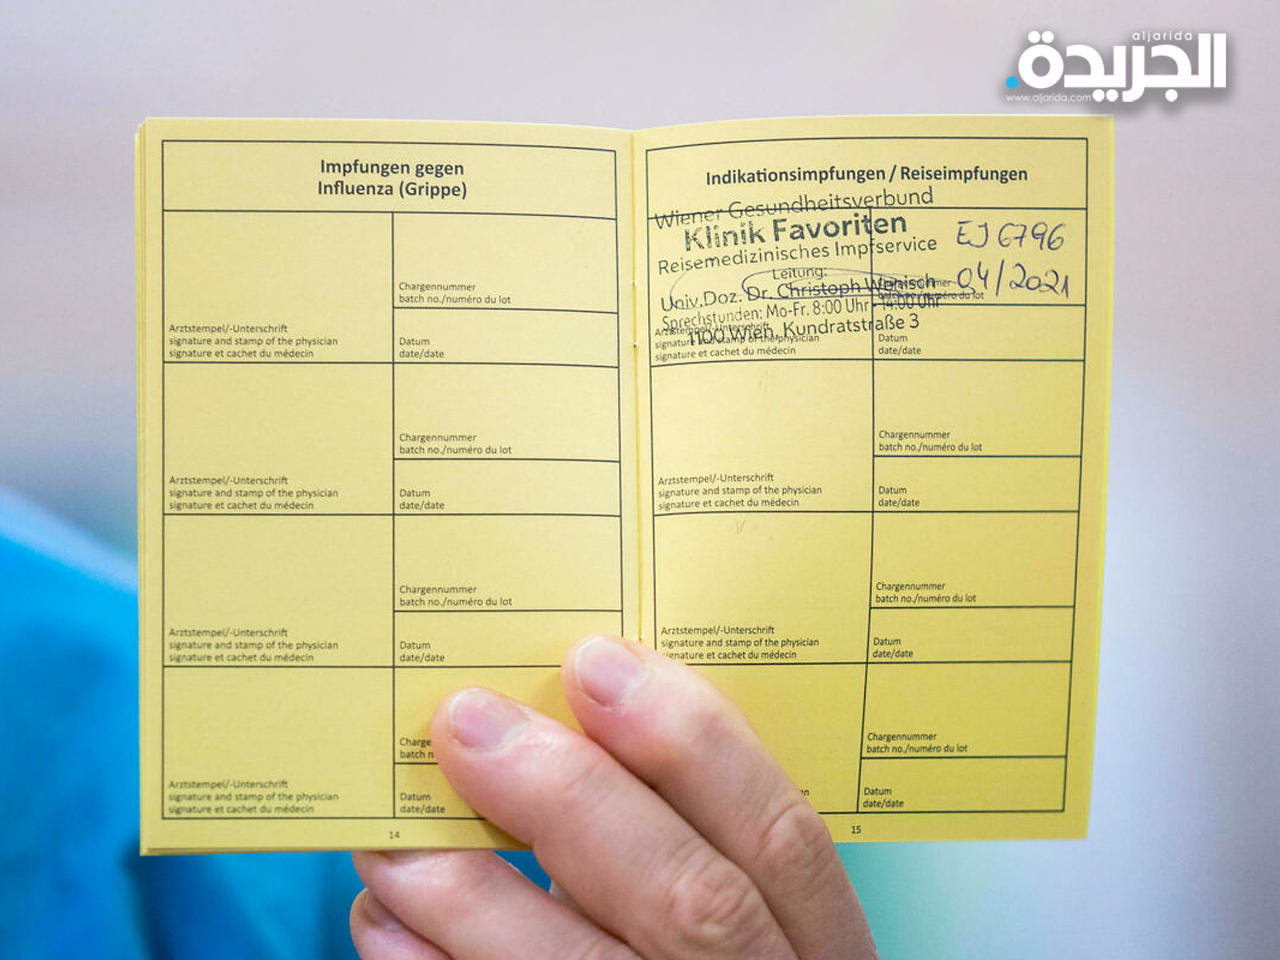 aljarida
الجريدة
www.aljarida.com
Impfungen gegen
Influenza (Grippe)
Chargennummer
batch no./numéro du lot
Arztstempel/-Unterschrift
signature and stamp of the physician
signature et cachet du médecin
Datum
date/date
Chargennummer
batch no./numéro du lot
Arztstempel/-Unterschrift
signature and stamp of the physician
signature et cachet du médecin
Datum
date/date
Chargennummer
batch no./numéro du lot
Arztstempel/-Unterschrift
signature and stamp of the physician
signature et cachet du médecin
Datum
date/date
Charge
batch n
Arztstempel/-Unterschrift
signature and stamp of the physician
signature et cachet du médecin
Datum
date/date
14
Indikationsimpfungen / Reiseimpfungen
Wiener Gesundheitsverbund
Klinik Favoriten
Reisemedizinisches Impfservice
Leitung:
Univ.Doz. Dr. Christoph Wenisch
Sprechstunden: Mo-Fr. 8:00 Uhr - 14:00 Uhr
1100 Wien, Kundratstraße 3
EJ6796
04/2021
Chargennummer
batch no./numéro du lot
Arztstempel/-Unterschrift
signature and stamp of the physician
signature et cachet du médecin
Datum
date/date
Chargennummer
batch no./numéro du lot
Arztstempel/-Unterschrift
signature and stamp of the physician
signature et cachet du médecin
Datum
date/date
Chargennummer
batch no./numéro du lot
Arztstempel/-Unterschrift
signature and stamp of the physician
signature et cachet du médecin
Datum
date/date
Chargennummer
batch no./numéro du lot
Datum
date/date
15